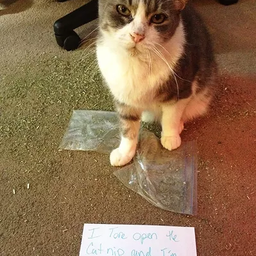 I Tore open the
Catnip and I'm